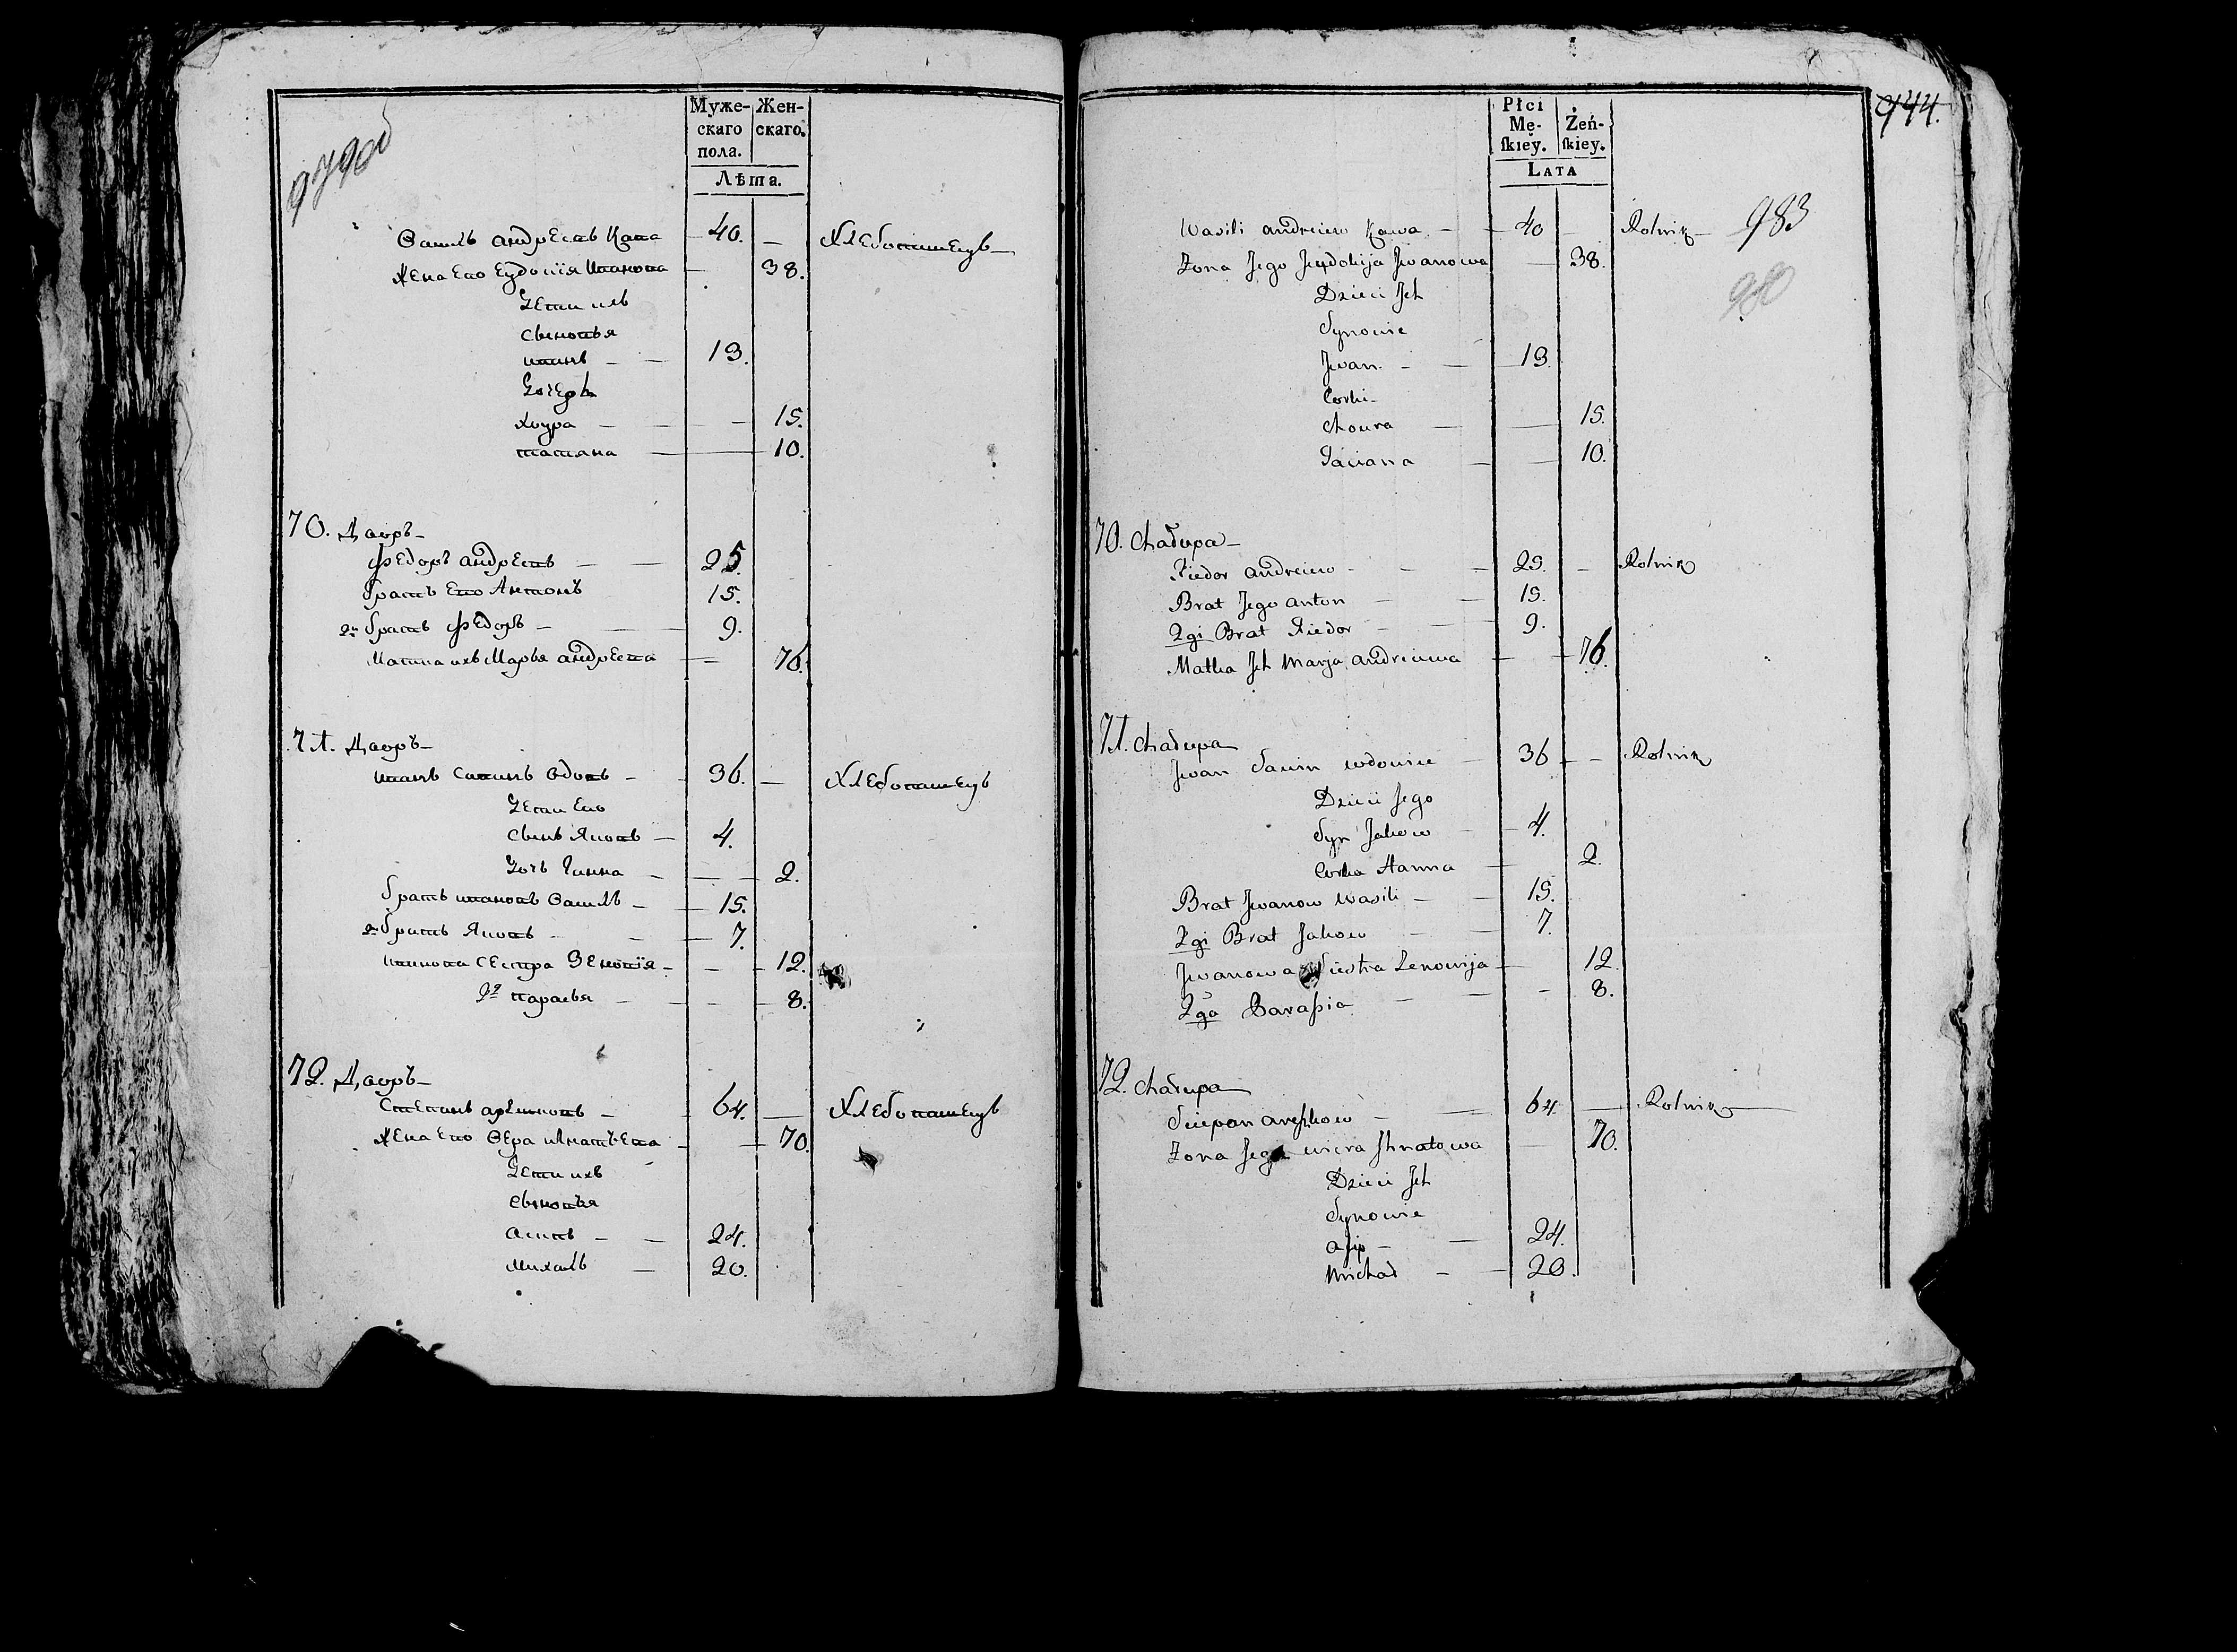 979об
Муже- Жен-
скаго скаго.
пола.
Лѣта.
Василь андреевъ Кава — 40. — Хлебопашецъ —
жена его Еудокія иванова — 38.
дети ихъ
сыновья
иванъ — — 13.
дочерь
хоура — — — 15.
татяна — — 10.
70. Дворъ —
Федоръ андреевъ — — 25.
братъ его Антонъ 15.
2й братъ федоръ — — 9.
Матка ихъ Марья андреева — 76.
71. Дворъ —
иванъ савинъ вдовъ — 36. — Хлебопашецъ
дети его
сынъ Яковъ — 4.
дочь Ганна — — 2.
братъ ивановъ василь — 15.
2й братъ Яковъ — — 7.
иванова сестра Зеновія — — 12.
2я парасья — — 8.
72. Дворъ —
Степанъ арешковъ — 64. — Хлебопашецъ
жена его вера игнатьева — 70.
дети ихъ
сыновья
асипъ — — 24.
михалъ — 20.
944.
Płci
Mę- Żeń-
ſkiey. ſkiey.
LATA
983
980
Wasili andreiew Kawa — 40 — Rolnik —
Żona Jego Jewdokija Jwanowa — 38.
Dzieci Jch
Synowie
Jwan — — 13.
Corki —
Choura — — 15.
Taciana — — 10.
70. Chałupa —
Fiedor andreiew — — 25. — Rolnik
Brat Jego anton — — 15.
2gi Brat Fiedor — — 9.
Matka Jch Marja andreiewa — 76.
71. Chałupa
Jwan Sawin wdowiec — 36 — Rolnik
Dzieci Jego
Syn Jakow — 4.
Corka Hanna — 2.
Brat Jwanow Wasili — — 15.
2gi Brat Jakow — — 7.
Jwanowa Siestra Zenowija — 12.
2ga Paraſia — — — 8.
72. Chałupa
Sciepan areſzkow — — 64 — Rolnik —
Żona Jego wiera Jhnatowa — 70.
Dzieci Jch
Synowie
aſip — — 24.
Michał — — 20.